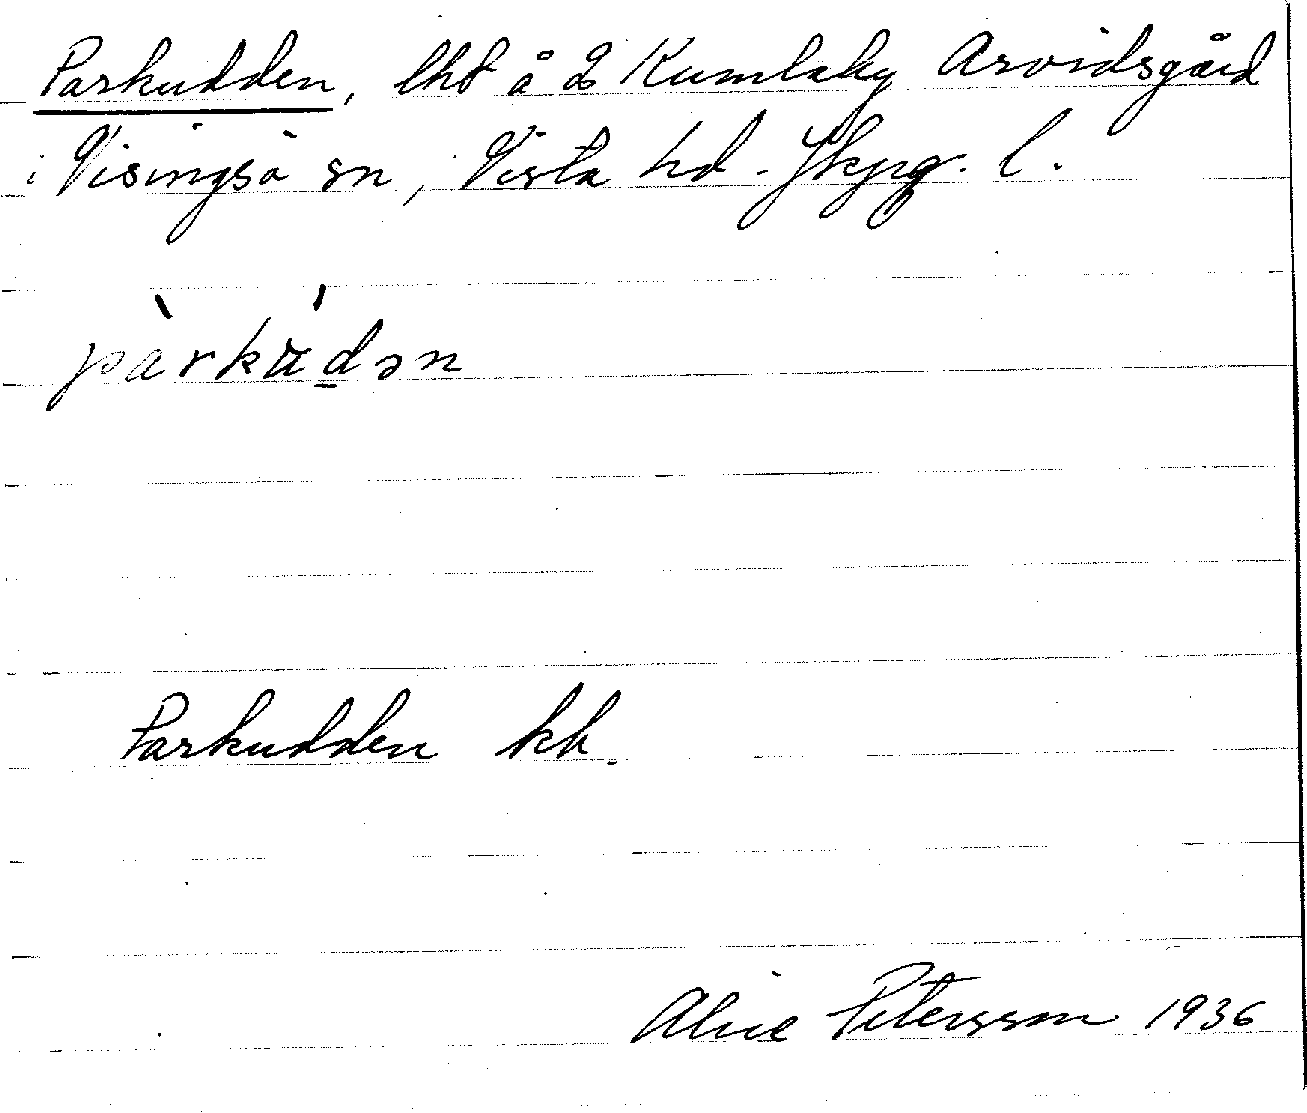 Parkudden, lht å 2 Kumlaby Arvidsgård
i Visingsö sn, Vista hd. Jkpg. l.
pàrkúdən
Parkudden kk.
Alice Petersson 1936